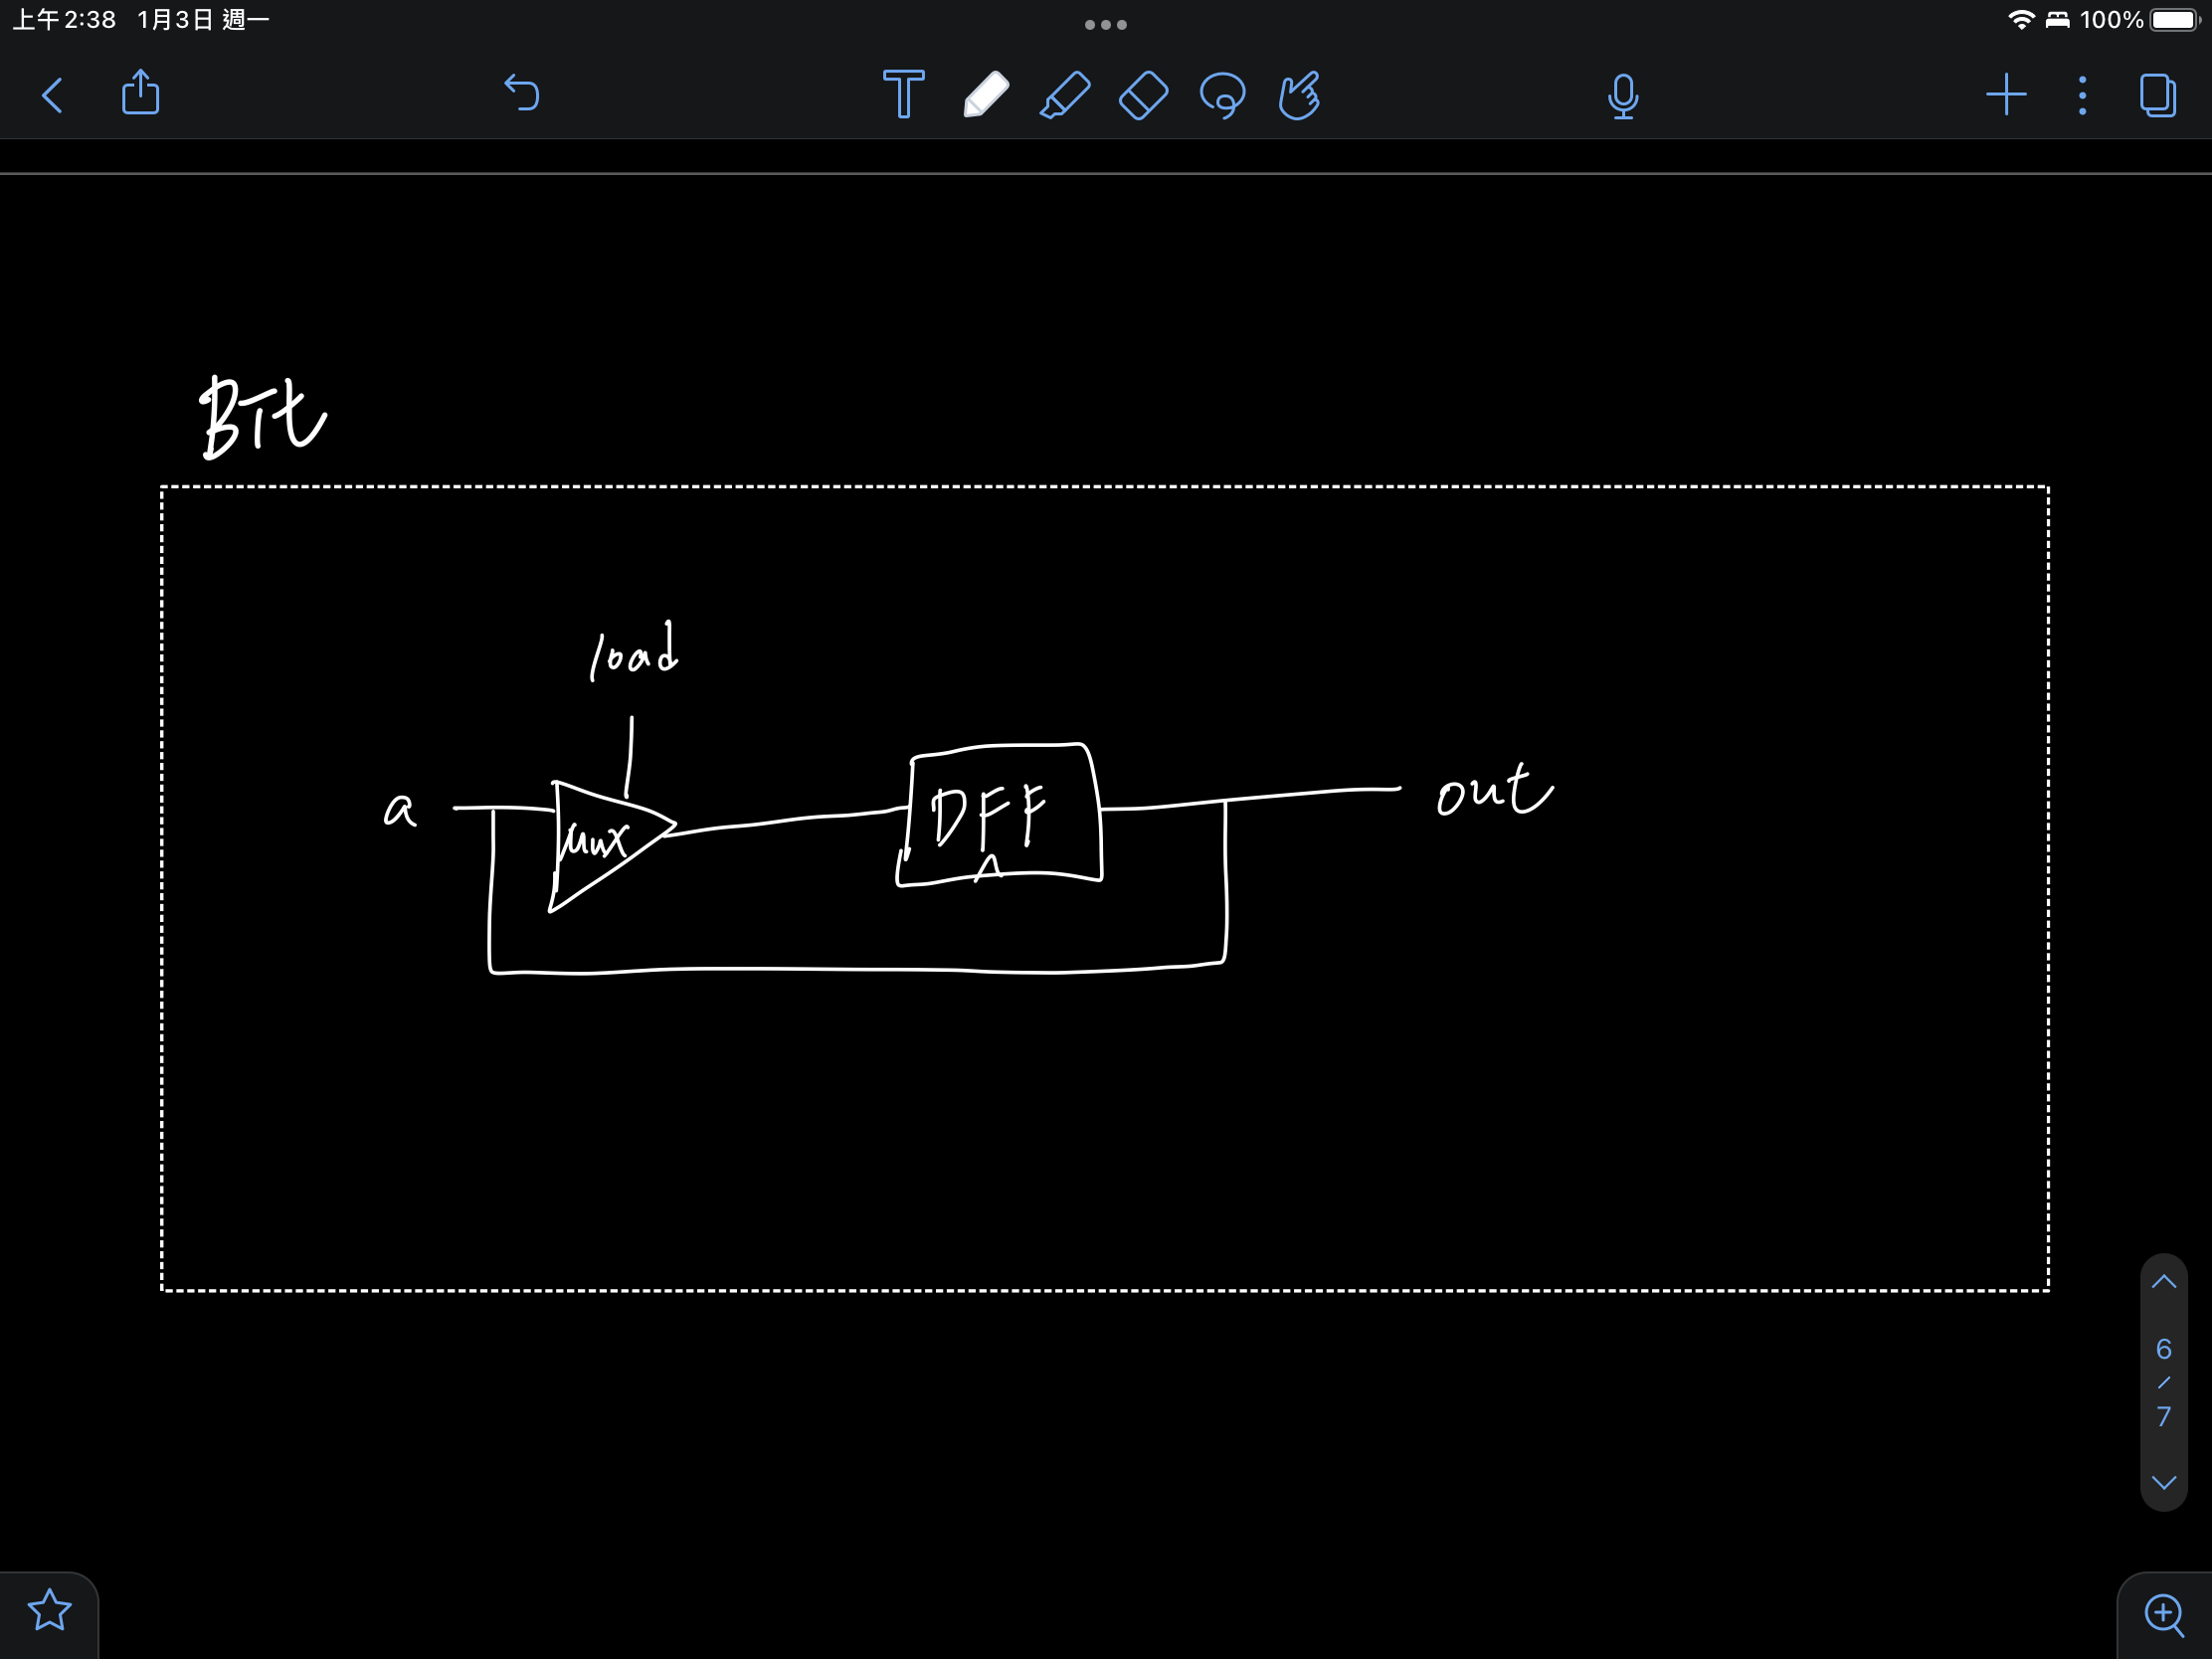 上午2:38 1月3日 週一
100%
T
Bit
load
a
Mux
DFF
out
6
/
7